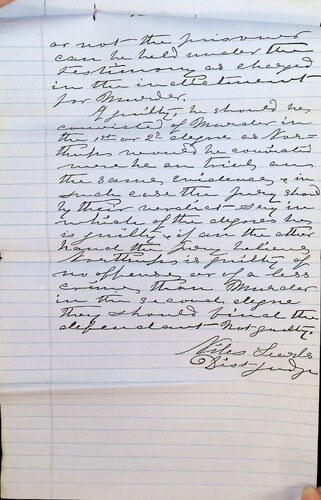 or not the prisoner
can be held under the
testimony as charged
in the indictment
for Murder.
If guilty, he should be
convicted of Murder in
the 1st or 2d degree as Nor-
thups would be convicted
were he on trial on
the same evidence, & in
such case the Jury should
by their verdict say in
which of the degrees he
is guilty, if on the other
hand the Jury believe
Northups is guilty of
no offense, or of a less
crime than Murder
in the second degree
they should find the
defendant Not guilty.
Niles Searls
Dist Judge